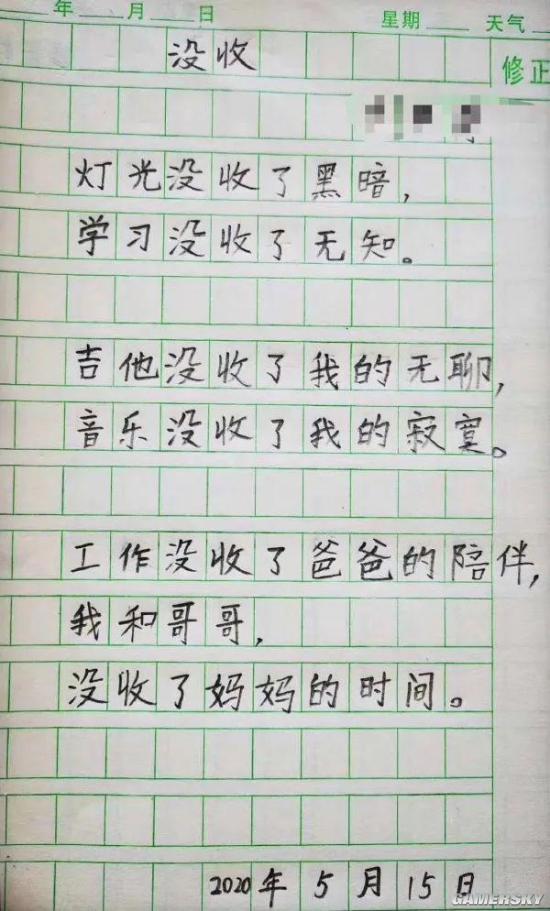 年 月 日 星期 天气
没收
修正
灯光没收了黑暗，
学习没收了无知。
吉他没收了我的无聊，
音乐没收了我的寂寞。
工作没收了爸爸的陪伴，
我和哥哥，
没收了妈妈的时间。
2020年5月15日
GAMERSKY